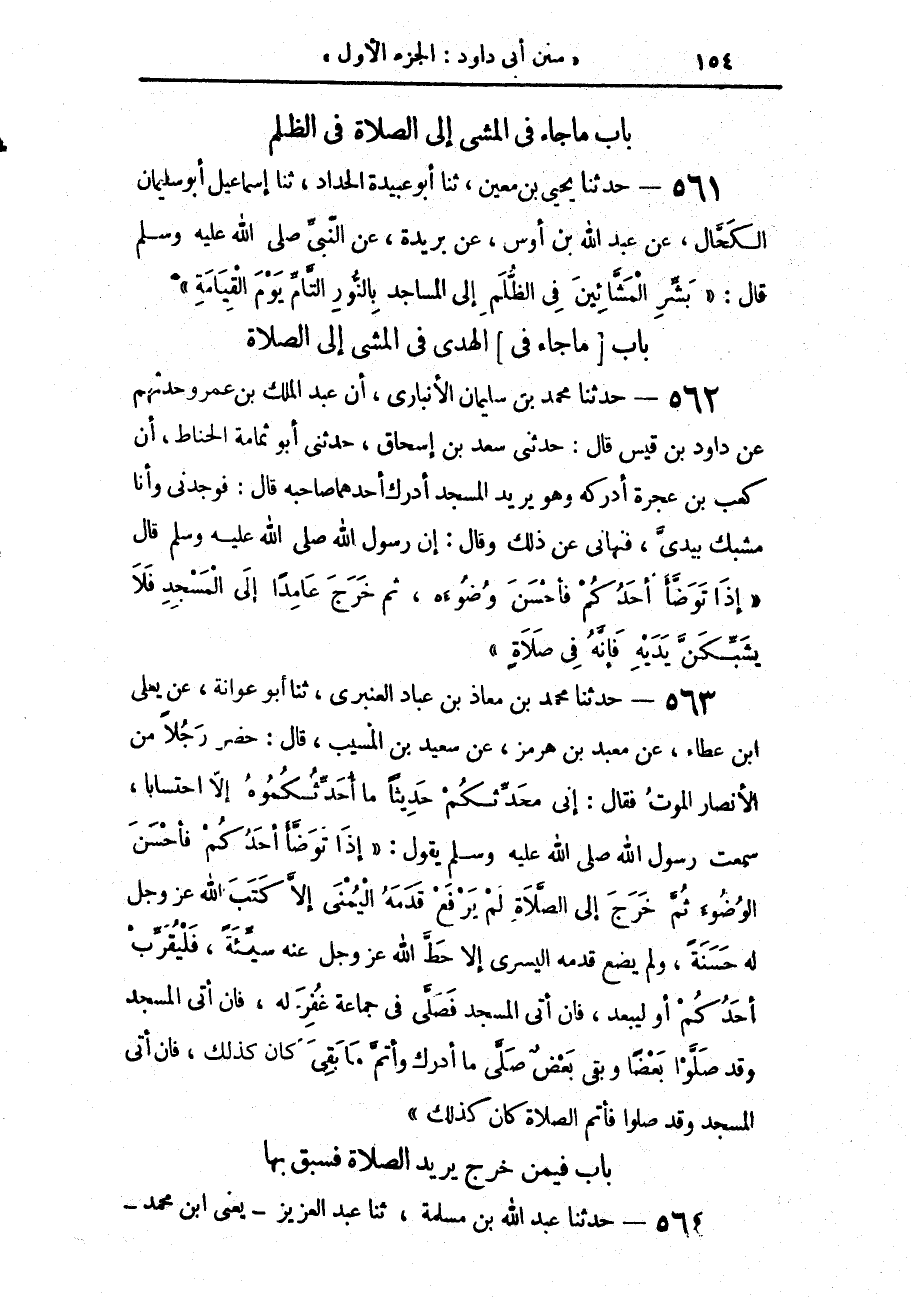 ١٥٤ « سنن أبى داود : الجزء الأول »
باب ماجاء فى المشى إلى الصلاة فى الظلم
٥٦١ — حدثنا يحيى بن معين ، ثنا أبو عبيدة الحداد ، ثنا إسماعيل أبو سليمان
الكَحَّال ، عن عبد الله بن أوس ، عن بريدة ، عن النّبيِّ صلى الله عليه وسلم
قال : « بَشِّرِ الْمَشَّائِينَ فِى الظُّلَمِ إلى المساجد بِالنُّورِ التَّامِّ يَوْمَ الْقِيَامَةِ »
باب [ ماجاء فى ] الهدى فى المشى إلى الصلاة
٥٦٢ — حدثنا محمد بن سليمان الأنبارى ، أن عبد الملك بن عمرو حدثهم
عن داود بن قيس قال : حدثنى سعد بن إسحاق ، حدثنى أبو ثمامة الحناط ، أن
كعب بن عجرة أدركه وهو يريد المسجد أدرك أحدهما صاحبه قال : فوجدنى وأنا
مشبك بيدىَّ ، فنهانى عن ذلك وقال : إن رسول الله صلى الله عليه وسلم قال
« إِذَا تَوَضَّأَ أَحَدُكُمْ فأَحْسَنَ وُضُوءَه ، ثم خَرَجَ عَامِدًا إلَى الْمَسْجِدِ فَلَا
يشَبِّكَنَّ يَدَيْهِ فَإِنَّهُ فِى صَلَاةٍ »
٥٦٣ — حدثنا محمد بن معاذ بن عباد العنبرى ، ثنا أبو عوانة ، عن يعلى
ابن عطاء ، عن معبد بن هرمز ، عن سعيد بن المُسيب ، قال : حضر رَجُلاً من
الأنصار الموتُ فقال : إنى محَدِّثكُمْ حَدِيثاً ما أُحَدِّثُكُمُوهُ إلّا احتسابا ،
سمعت رسول الله صلى الله عليه وسلم يقول : « إِذَا تَوَضَّأَ أَحَدُكُمْ فأَحْسَنَ
الوُضُوء ثُمَّ خَرَجَ إلى الصَّلَاةِ لَمْ يَرْفَعْ قَدَمَهُ الْيُمْنَى إلاَّ كَتَبَ الله عز وجل
له حَسَنَةً ، ولم يضع قدمه اليسرى إلا حَطَّ الله عز وجل عنه سيِّئَةً ، فَلْيُقَرِّبْ
أَحَدُكُمْ أو ليبعد ، فان أتى المسجد فَصَلَّى فى جماعة غُفِرَ له ، فان أتى المسجد
وقد صَلَّوْا بَعْضًا وبقى بَعْضٌ صَلَّى ما أدرك وأتمَّ مَا بَقِىَ كان كذلك ، فان أتى
المسجد وقد صلوا فأتم الصلاة كان كذلك »
باب فيمن خرج يريد الصلاة فسبق بها
٥٦٤ — حدثنا عبد الله بن مسلمة ، ثنا عبد العزيز — يعنى ابن محمد —